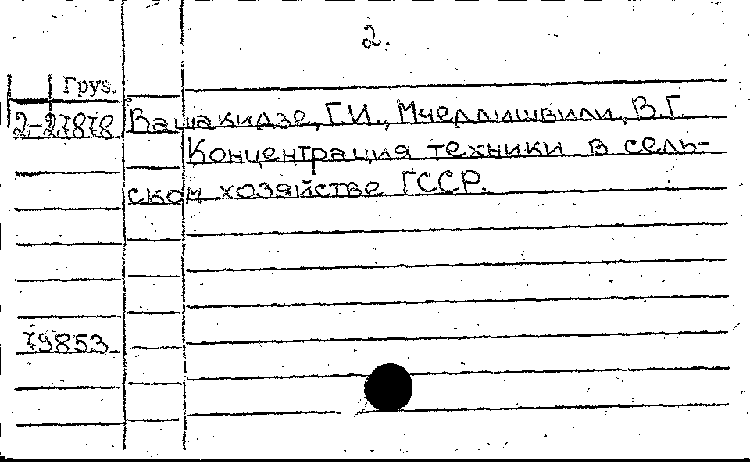 2.
Груз.
2-27878 Вашакидзе, Г.И., Мчедлишвили, В.Г.
Концентрация техники в сель-
ском хозяйстве ГССР.
79853